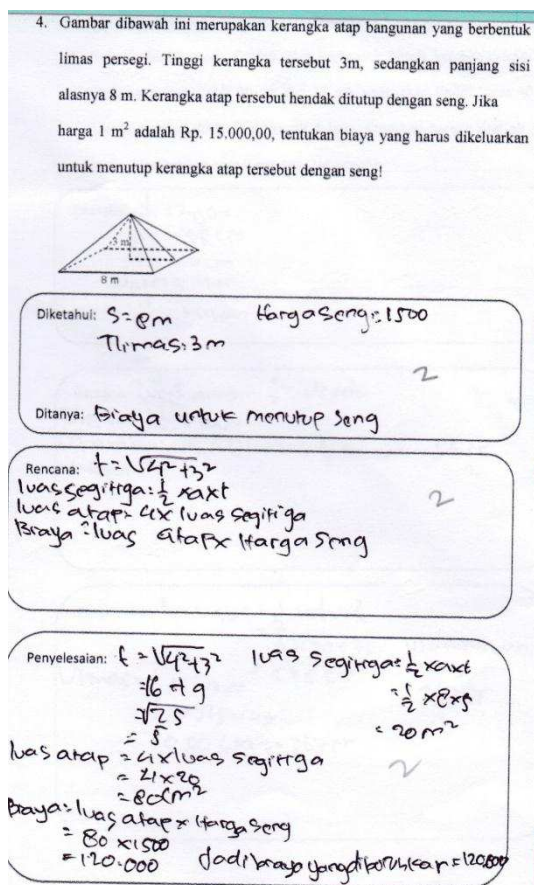 4. Gambar dibawah ini merupakan kerangka atap bangunan yang berbentuk
limas persegi. Tinggi kerangka tersebut 3m, sedangkan panjang sisi
alasnya 8 m. Kerangka atap tersebut hendak ditutup dengan seng. Jika
harga 1 m² adalah Rp. 15.000,00, tentukan biaya yang harus dikeluarkan
untuk menutup kerangka atap tersebut dengan seng!
3 m
8 m
Diketahui: S = 8m Harga Seng: 1500
T limas: 3m
2
Ditanya: Biaya untuk menutup seng
Rencana: t = √4²+3²
luas segitiga: ½ x a x t
luas atap = 4 x luas segitiga
Biaya = luas atap x Harga Seng
2
Penyelesaian: t = √4²+3² luas segitiga = ½ x a x t
= 16 + 9 = ½ x 8 x 5
= √25 = 20 m²
= 5
luas atap = 4 x luas segitiga
= 4 x 20
= 80 m²
2
Biaya = luas atap x Harga Seng
= 80 x 1500
= 120.000 Jadi biaya yang dibutuhkan = 120.000